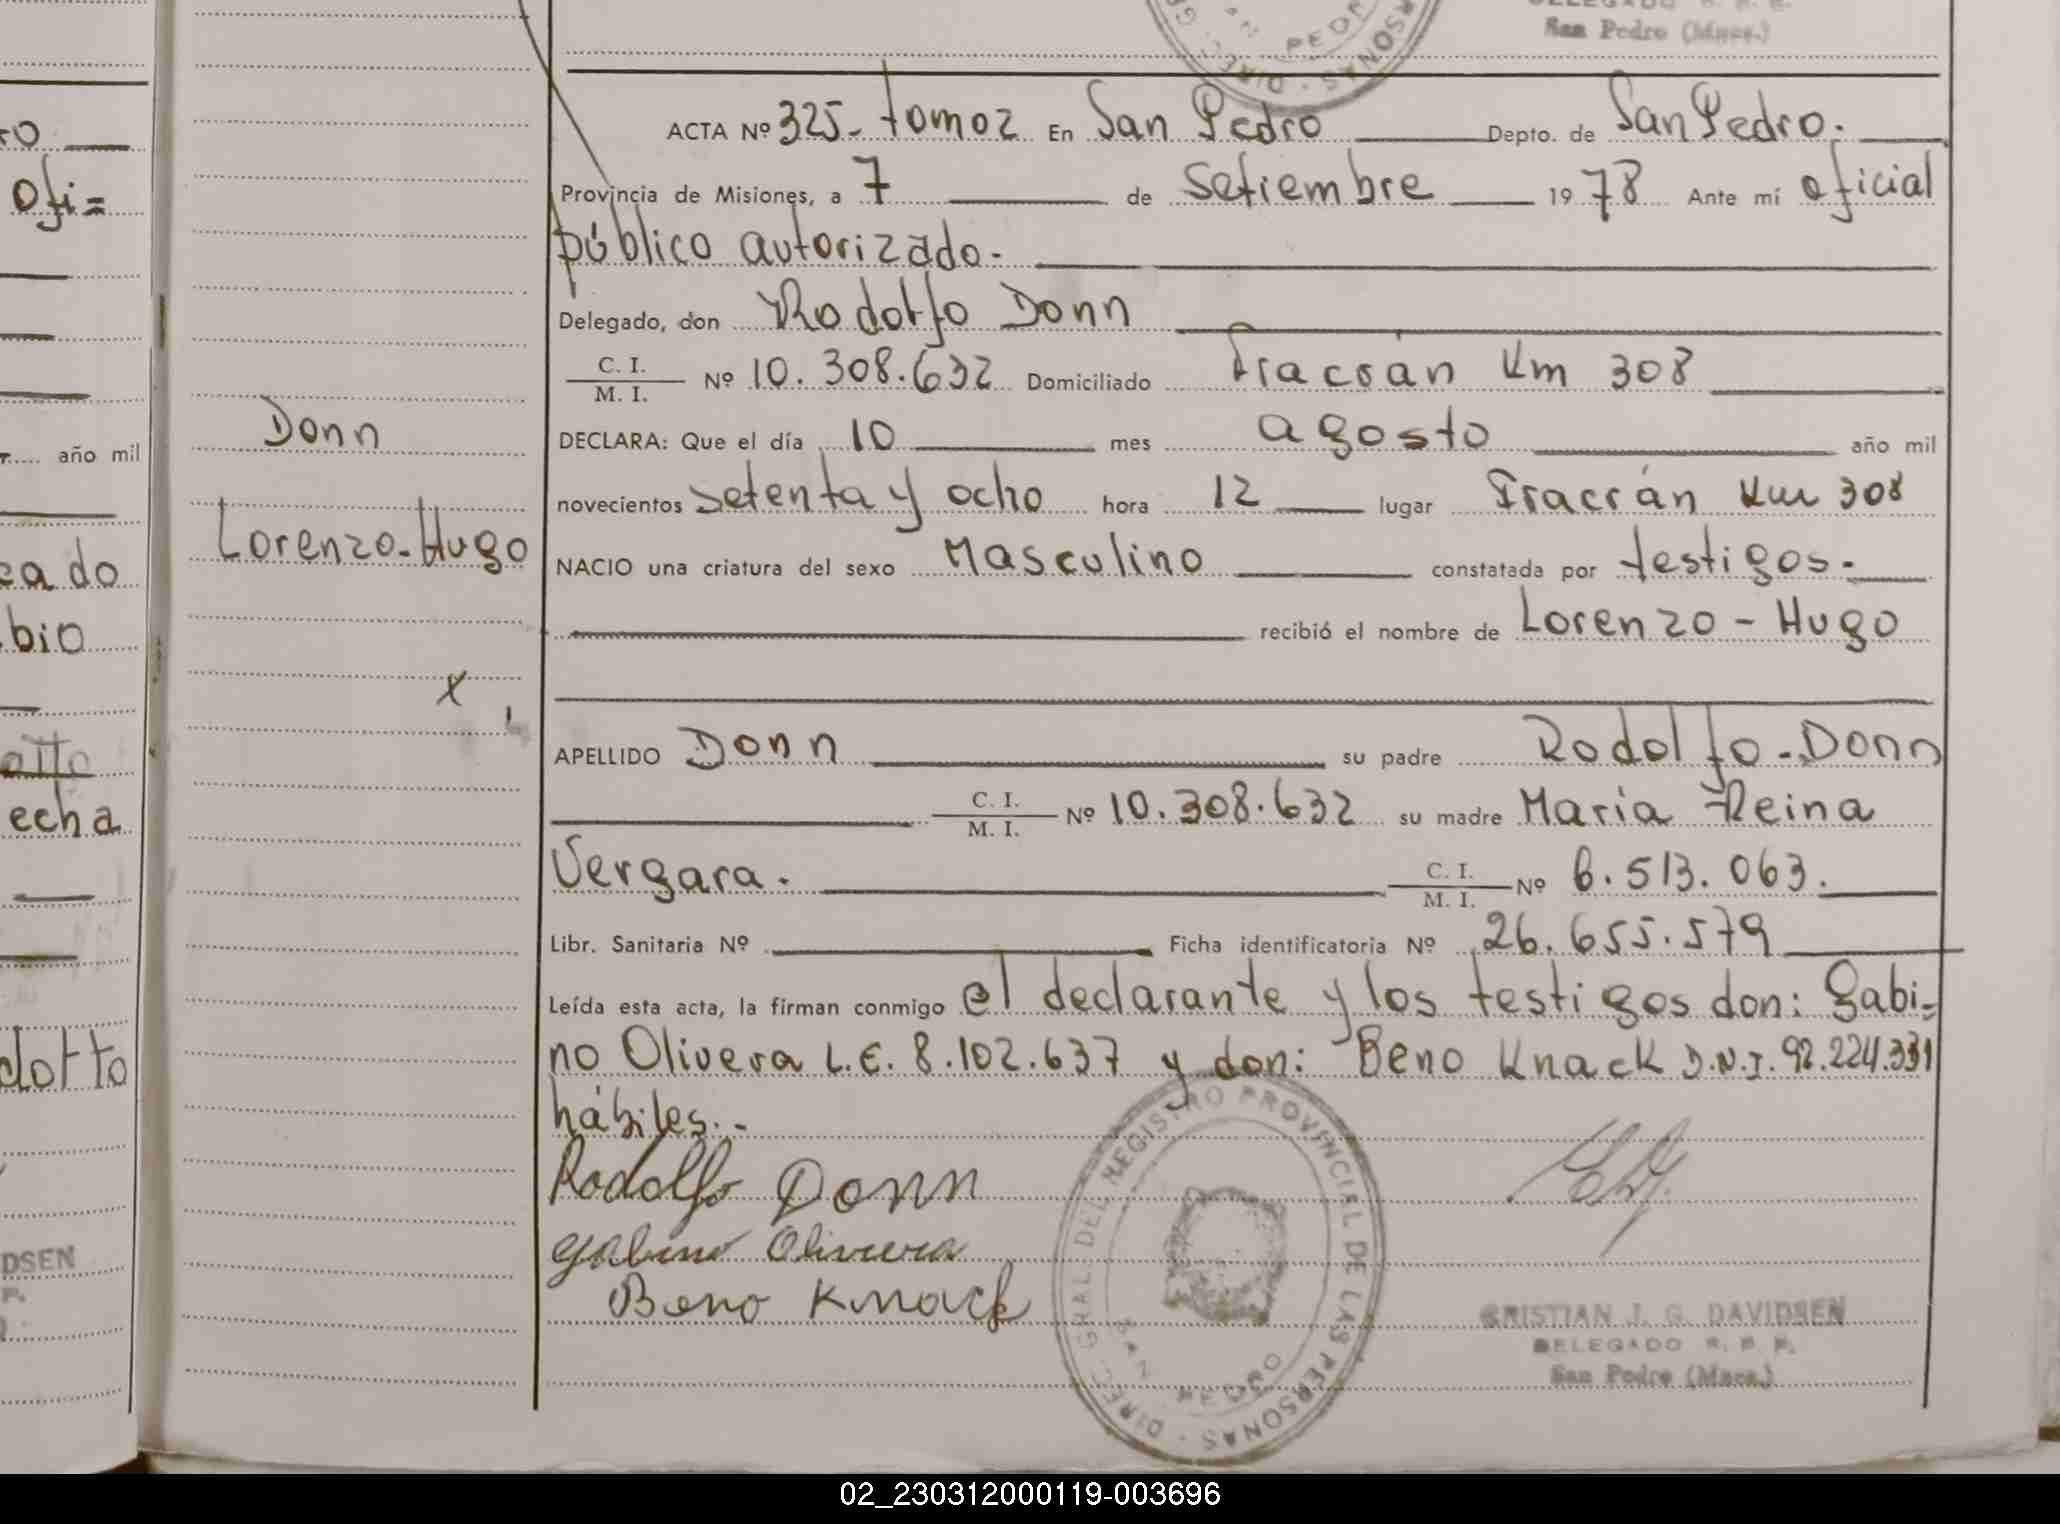 DELEGADO R. P. P.
San Pedro (Mnes.)
ACTA Nº 325- tomo 2 En San Pedro Depto. de San Pedro.
Provincia de Misiones, a 7 de Setiembre 1978 Ante mí oficial
público autorizado.-
Delegado, don Rodolfo Donn
C. I. / M. I. Nº 10.308.632 Domiciliado Fracrán Km 308
DECLARA: Que el día 10 mes agosto año mil
novecientos setenta y ocho hora 12 lugar Fracrán Km 308
NACIO una criatura del sexo Masculino constatada por testigos.-
recibió el nombre de Lorenzo - Hugo
APELLIDO Donn su padre Rodolfo - Donn
C. I. / M. I. Nº 10.308.632 su madre Maria Reina
Vergara. C. I. / M. I. Nº 6.513.063.
Libr. Sanitaria Nº Ficha identificatoria Nº 26.655.579
Leída esta acta, la firman conmigo el declarante y los testigos don: Gabi=
no Olivera L.E. 8.102.637 y don: Beno Knack D.N.I. 92.224.331
hábiles.-
Rodolfo Donn
Gabino Olivera
Beno Knack
DIREC. GRAL. DEL REGISTRO PROVINCIAL DE LAS PERSONAS
SAN PEDRO
CRISTIAN J. G. DAVIDSEN
DELEGADO R. P. P.
San Pedro (Mnes.)
Donn
Lorenzo-Hugo
x
ofi=
año mil
bio
echa
DSEN
02_230312000119-003696